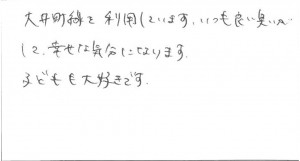 大井町線を利用しています。いつも良い臭いが
して、幸せな気分になります。
子どもも大好きです。